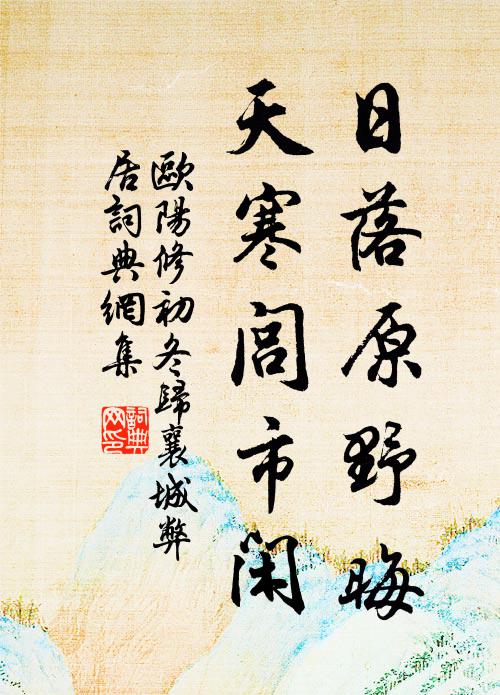 日落原野晦
天寒閭市閑
歐陽修初冬歸襄城弊
居詞典網集
詞典
网印